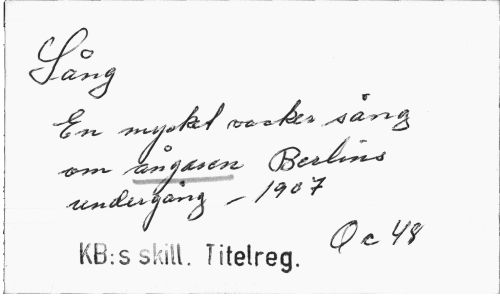 Sång
En mycket vacker sång
om ångaren Berlins
undergång - 1907
Oc 48
KB:s skill. Titelreg.